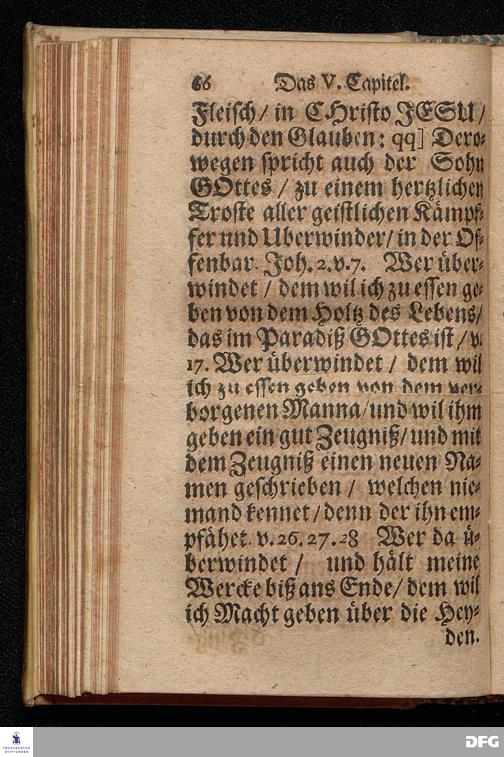 66 Das V. Capitel.
Fleisch / in CHristo JESU /
durch den Glauben: qq] Dero-
wegen spricht auch der Sohn
GOttes / zu einem hertzlichen
Troste aller geistlichen Kämpf-
fer und Uberwinder / in der Of-
fenbar. Joh. 2. v. 7. Wer über-
windet / dem wil ich zu essen ge-
ben von dem Holtz des Lebens /
das im Paradiß GOttes ist / v.
17. Wer überwindet / dem wil
ich zu essen geben von dem ver-
borgenen Manna / und wil ihm
geben ein gut Zeugniß / und mit
dem Zeugniß einen neuen Na-
men geschrieben / welchen nie-
mand kennet / denn der ihn em-
pfähet. v. 26. 27. 28 Wer da ü-
berwindet / und hält meine
Wercke biß ans Ende / dem wil
ich Macht geben über die Hey-
den.
FRANCKESCHE
STIFTUNGEN
DFG